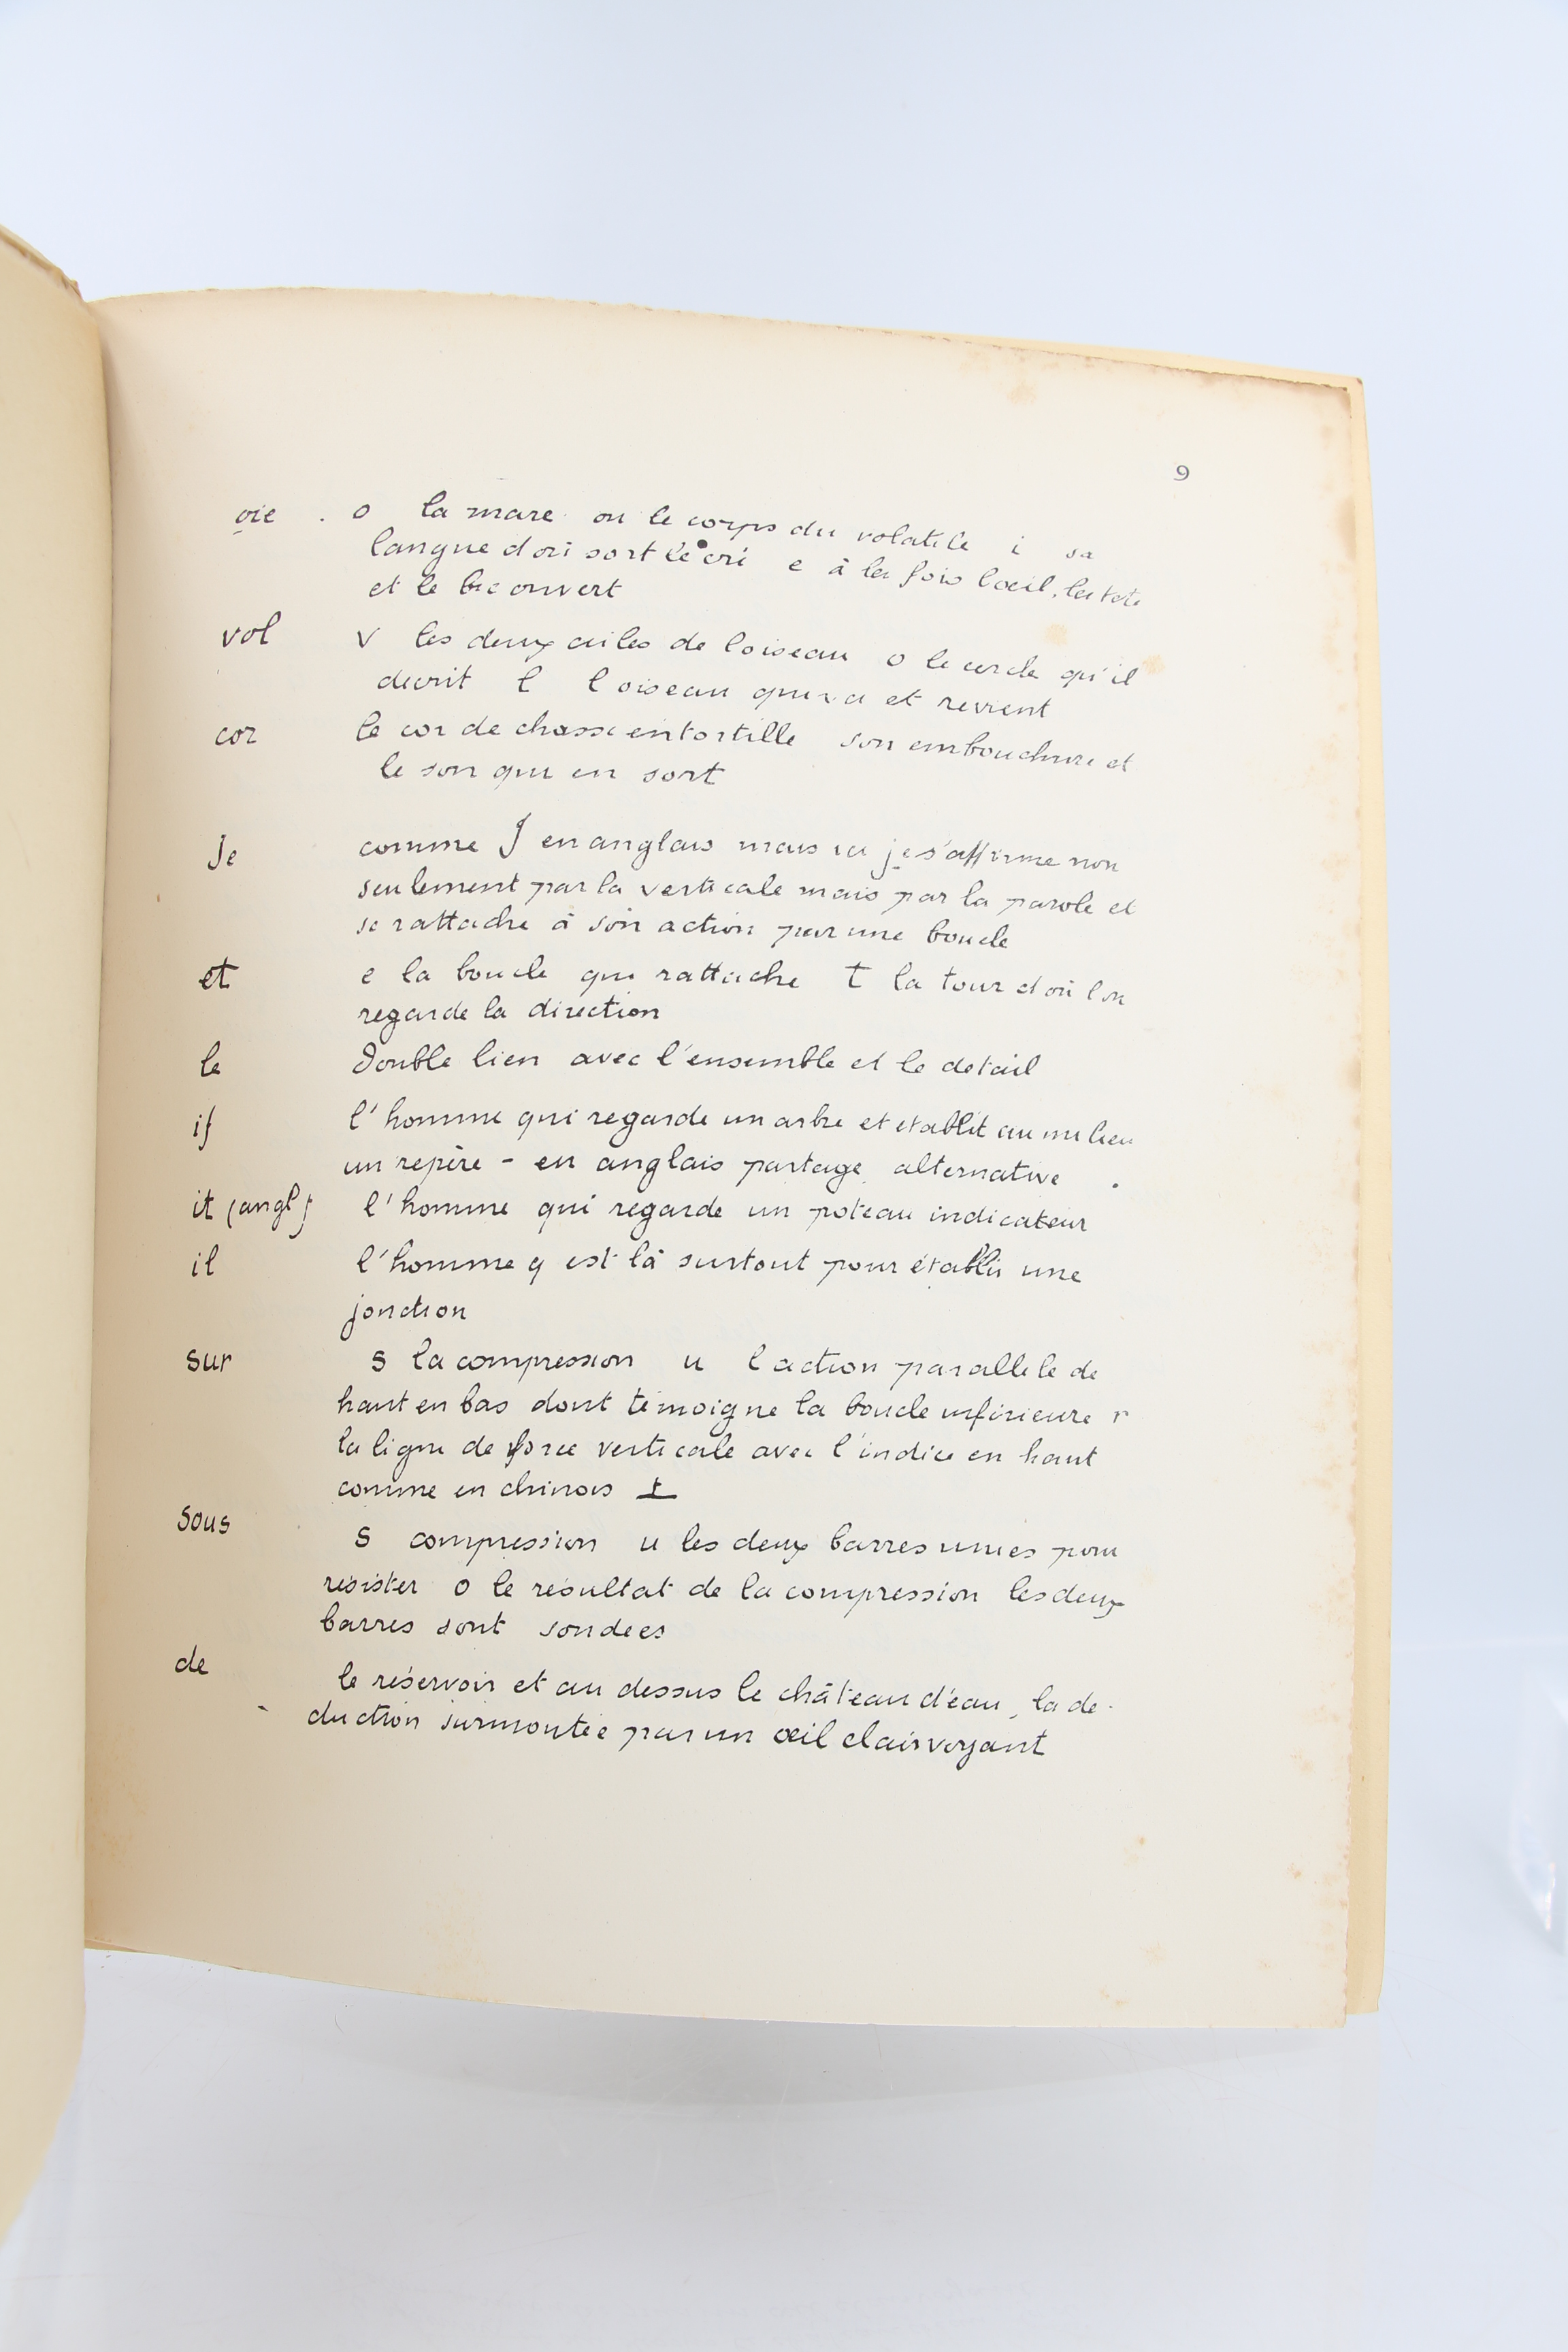 9
oie . o la mare ou le corps du volatile i sa
langue d'où sort le cri e à la fois l'oeil, la tete
et le bec ouvert
vol v les deux ailes de l'oiseau o le cercle qu'il
decrit l l oiseau qui va et revient
cor le cor de chasse entortille son embouchure et
le son qui en sort
Je comme J en anglais mais ici je s'affirme non
seulement par la verticale mais par la parole et
se rattache à son action par une boucle
et e la boucle qui rattache t la tour d où l on
regarde la direction
le double lien avec l'ensemble et le detail
if l'homme qui regarde un arbre et etablit au milieu
un repère - en anglais partage, alternative .
it (angl) l'homme qui regarde un poteau indicateur
il l'homme q est là surtout pour établir une
jonction
sur s la compression u l action parallele de
haut en bas dont témoigne la boucle inférieure r
la ligne de force verticale avec l'indice en haut
comme en chinois 上
sous s compression u les deux barres unies pour
résister o le résultat de la compression les deux
barres sont soudees
de le réservoir et au dessus le château d'eau, la de-
duction surmontée par un œil clairvoyant